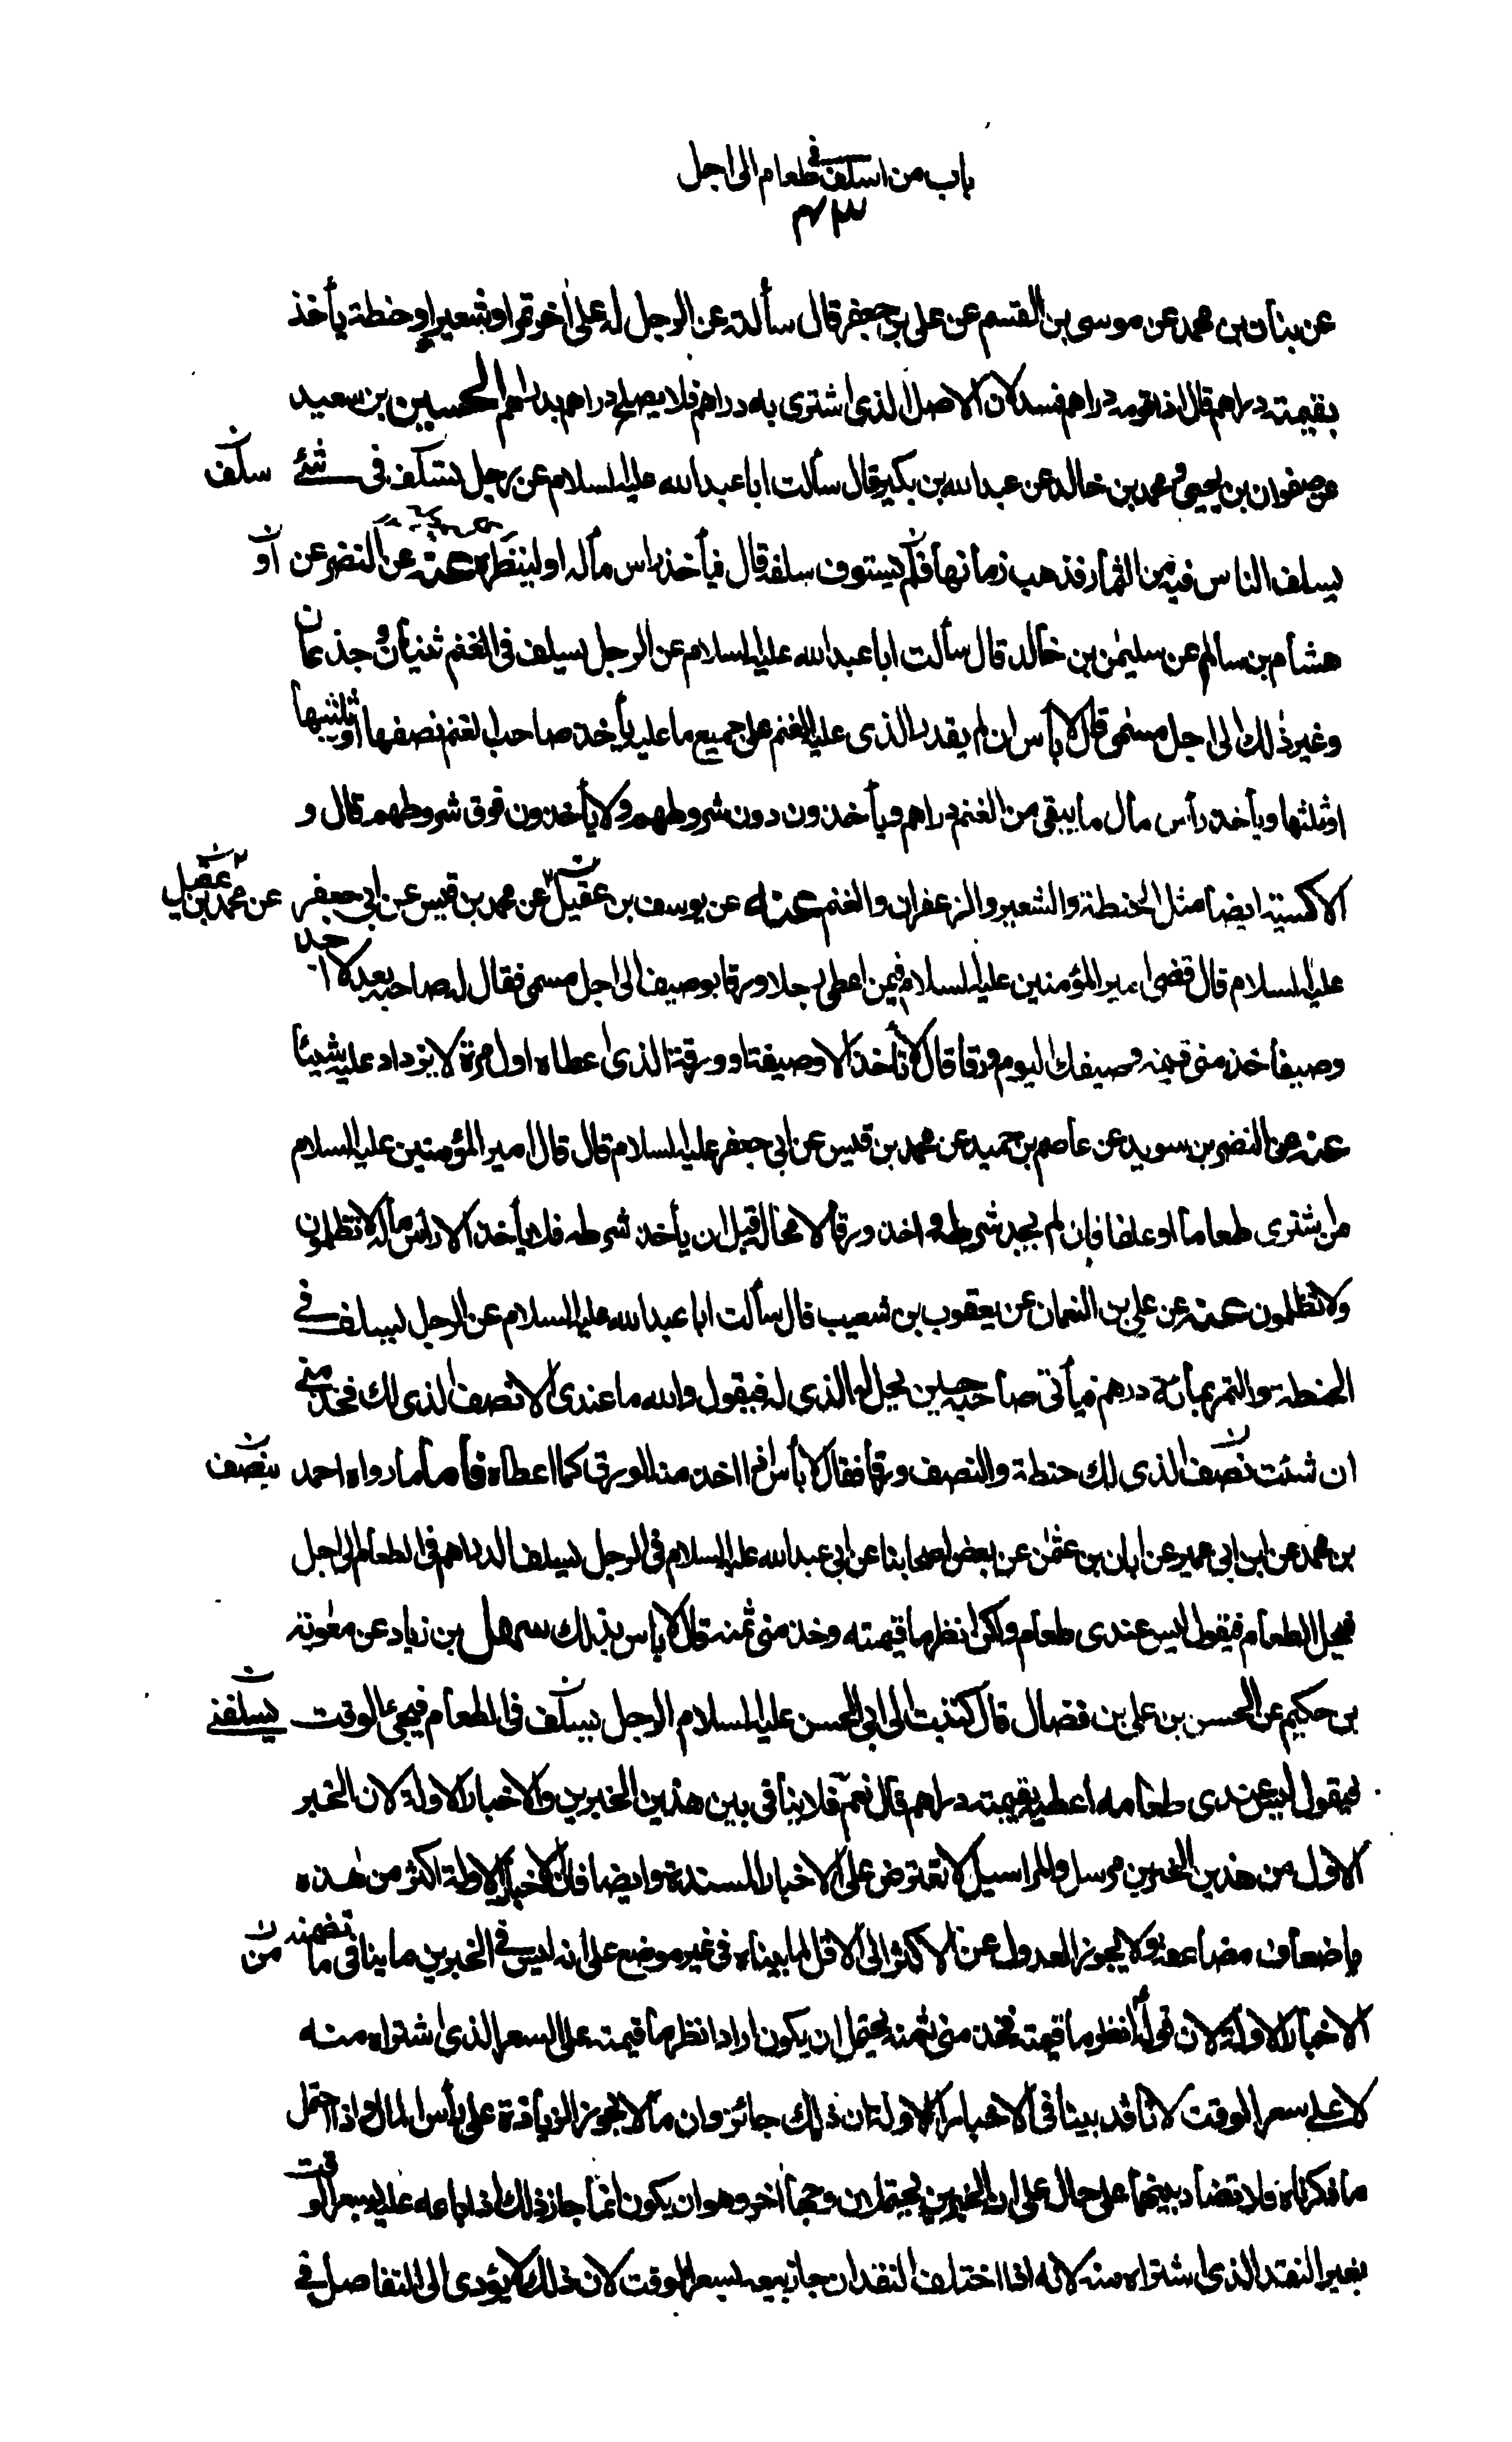 باب من اسلف فى طعام الى اجل
٤٣
عن بنان بن محمد عن موسى بن القسم عن على بن جعفر قال سألته عن الرجل له على اخر تمر او شعير او حنطة يأخذ
بقيمته دراهم قال اذا قومه دراهم فسد لان الاصل الذى اشترى به دراهم فلا يصلح دراهم بدراهم الحسين بن سعيد
عن صفوان بن يحيى و محمد بن خالد عن عبد الله بن بكير قال سألت ابا عبد الله عليه السلام عن رجل يستلف فى شئ سلف
يسلف الناس فيه من الثمار فذهب زمانها فلم يستوف سلفه قال فيأخذ راس مأله او لينظره عنه عن النضر عن او
هشام بن سالم عن سليمٰن بن خالد قال سألت ابا عبد الله عليه السلام عن الرجل يسلف فى الغنم ثنيان و جذعان
وغير ذٰلك الى اجل مسمى قال لا بأس ان لم يقدر الذى عليه الغنم على جميع ما عليه يأخذ صاحب الغنم نصفها او ثلثيها
او ثلثها ويأخذ رأس مأل ما يبقى من الغنم دراهم ويأخذون دون شروطهم ولا يأخذون فوق شروطهم قال و
الاكسية ايضا مثل الحنطة والشعير والزعفران والغنم عنه عن يوسف بن عقيل عن محمد بن قيس عن ابى جعفر عن محمد بن عقيل
عليه السلام قال قضى امير المؤمنين عليه السلام فيمن اعطى رجلا ورقا بوصيف الى اجل مسمى فقال له صاحبه بعد لا اجد
وصيفا خذ منى قيمة وصيفك اليوم ورقا قال لا تأخذ الا وصيفة او ورقة الذى اعطاه اول مرة لا يزداد عليه شيئا
عنه عن النضر بن سويد عن عاصم بن حميد عن محمد بن قيس عن ابى جعفر عليه السلام قال قال امير المؤمنين عليه السلام
من اشترى طعاما او علفا فان لم يجد شرطه و اخذ ورقا لا محالة قبل ان يأخذ شرطه فلا يأخذ الا رأس مأله لا تظلمون
ولا تظلمون عنه عن على بن النعمان عن يعقوب بن شعيب قال سألت ابا عبد الله عليه السلام عن الرجل يسلف فى
الحنطة والتمر بمائة درهم فيأتى صاحبه حين يحل له الذى له فيقول والله ما عندى الا نصف الذى لك فخذ منى
ان شئت نصف الذى لك حنطة والنصف ورقا فقال لا بأس اذا اخذ منه الورق كما اعطاه فأما ما رواه احمد بنصف
بن محمد عن ابن ابى عمير عن ابان بن عثمٰن عن بعض اصحابنا عن ابى عبد الله عليه السلام فى الرجل يسلف الدراهم فى الطعام الى اجل
فيحل الطعام فيقول ليس عندى طعام ولكن انظر ما قيمته وخذ منى ثمنه قال لا بأس بذلك سهل بن زياد عن معٰوية
بن حكيم عن الحسن بن على بن فضال قال كتبت الى ابى الحسن عليه السلام الرجل يسلف فى الطعام فيجئ الوقت يسلفنى
فيقول ليس عندى طعام اعطيه بقيمته دراهم قال نعم فلا ينافى بين هذين الخبرين والاخبار الاولة لان الخبر
الاول من هذين الخبرين مرسل والمراسيل لا تعترض على الاخبار المسندة وايضا فان الاخبار الاولة اكثر من هذه
باضعاف مضاعفة ولا يجوز العدول عن الاكثر الى الاقل لما بيناه فى غير موضع على انه ليس فى الخبرين ما ينافى ما تضمنه من
الاخبار الاولة لان قوله انظر ما قيمته فخذ منى ثمنه يحتمل ان يكون اراد انظر ما قيمته على السعر الذى اشتراه منه
لا على سعر الوقت لانا قد بينا فى الاخبار الاولة ان ذلك جائز وان ما لا يجوز الزيادة على رأس المال و اذا احتمل
ما ذكرناه فلا تضاد بينهما على حال على ان الخبرين يحتملان وجها اٰخر وهو ان يكون انما جاز ذلك اذا باعه عليه بسعر الوقت
بغير النقد الذى اشتراه منه لانه اذا اختلف النقدان جاز بيعه بسعر الوقت لان ذلك لا يؤدى الى التفاصل فى